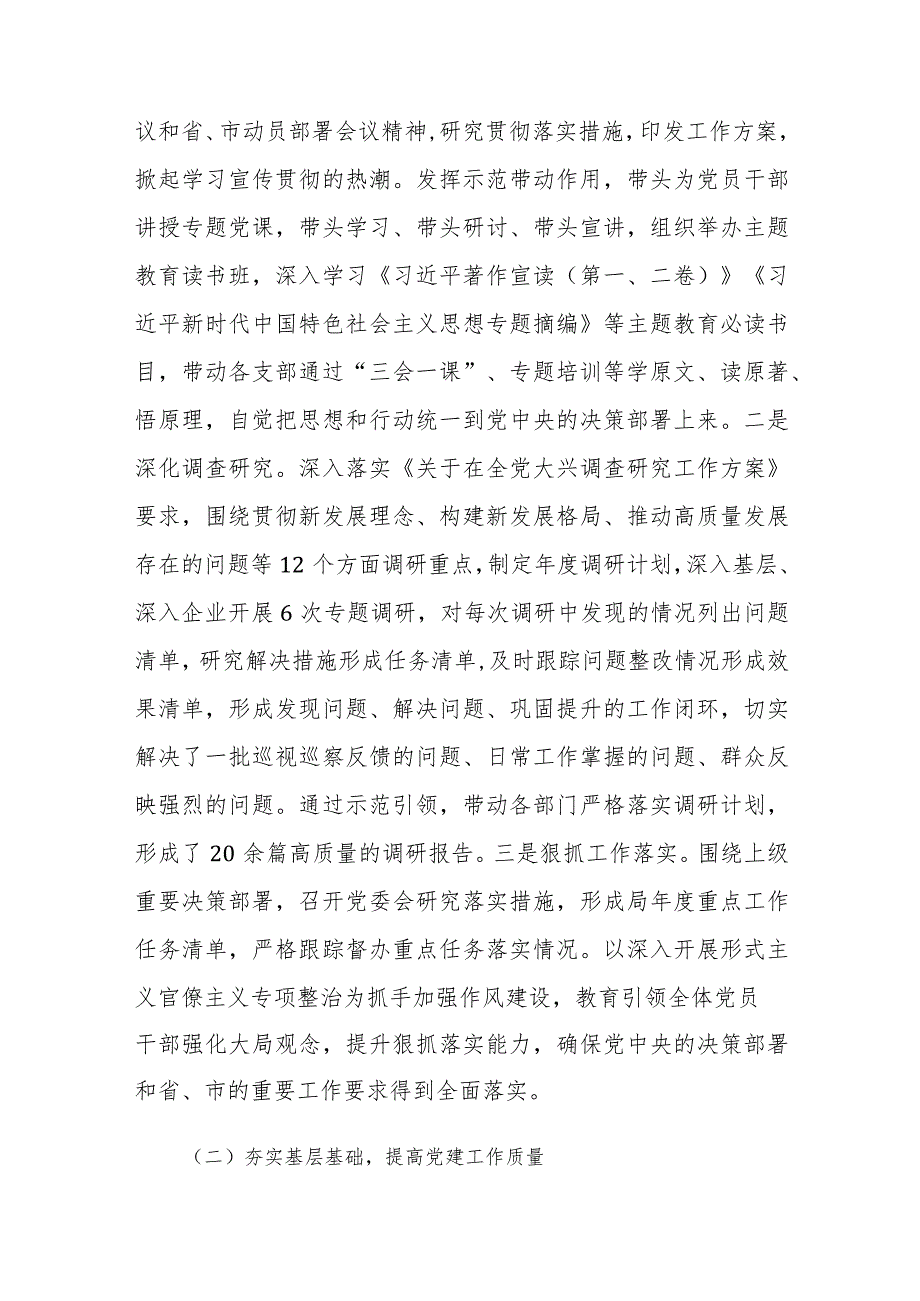 议和省、市动员部署会议精神,研究贯彻落实措施，印发工作方案，
掀起学习宣传贯彻的热潮。发挥示范带动作用，带头为党员干部
讲授专题党课，带头学习、带头研讨、带头宣讲，组织举办主题
教育读书班，深入学习《习近平著作宣读（第一、二卷）》《习
近平新时代中国特色社会主义思想专题摘编》等主题教育必读书
目，带动各支部通过“三会一课”、专题培训等学原文、读原著、
悟原理，自觉把思想和行动统一到党中央的决策部署上来。二是
深化调查研究。深入落实《关于在全党大兴调查研究工作方案》
要求，围绕贯彻新发展理念、构建新发展格局、推动高质量发展
存在的问题等 12 个方面调研重点,制定年度调研计划,深入基层、
深入企业开展 6 次专题调研，对每次调研中发现的情况列出问题
清单，研究解决措施形成任务清单,及时跟踪问题整改情况形成效
果清单，形成发现问题、解决问题、巩固提升的工作闭环，切实
解决了一批巡视巡察反馈的问题、日常工作掌握的问题、群众反
映强烈的问题。通过示范引领，带动各部门严格落实调研计划，
形成了 20 余篇高质量的调研报告。三是狠抓工作落实。围绕上级
重要决策部署，召开党委会研究落实措施，形成局年度重点工作
任务清单，严格跟踪督办重点任务落实情况。以深入开展形式主
义官僚主义专项整治为抓手加强作风建设，教育引领全体党员
干部强化大局观念，提升狠抓落实能力，确保党中央的决策部署
和省、市的重要工作要求得到全面落实。
（二）夯实基层基础，提高党建工作质量